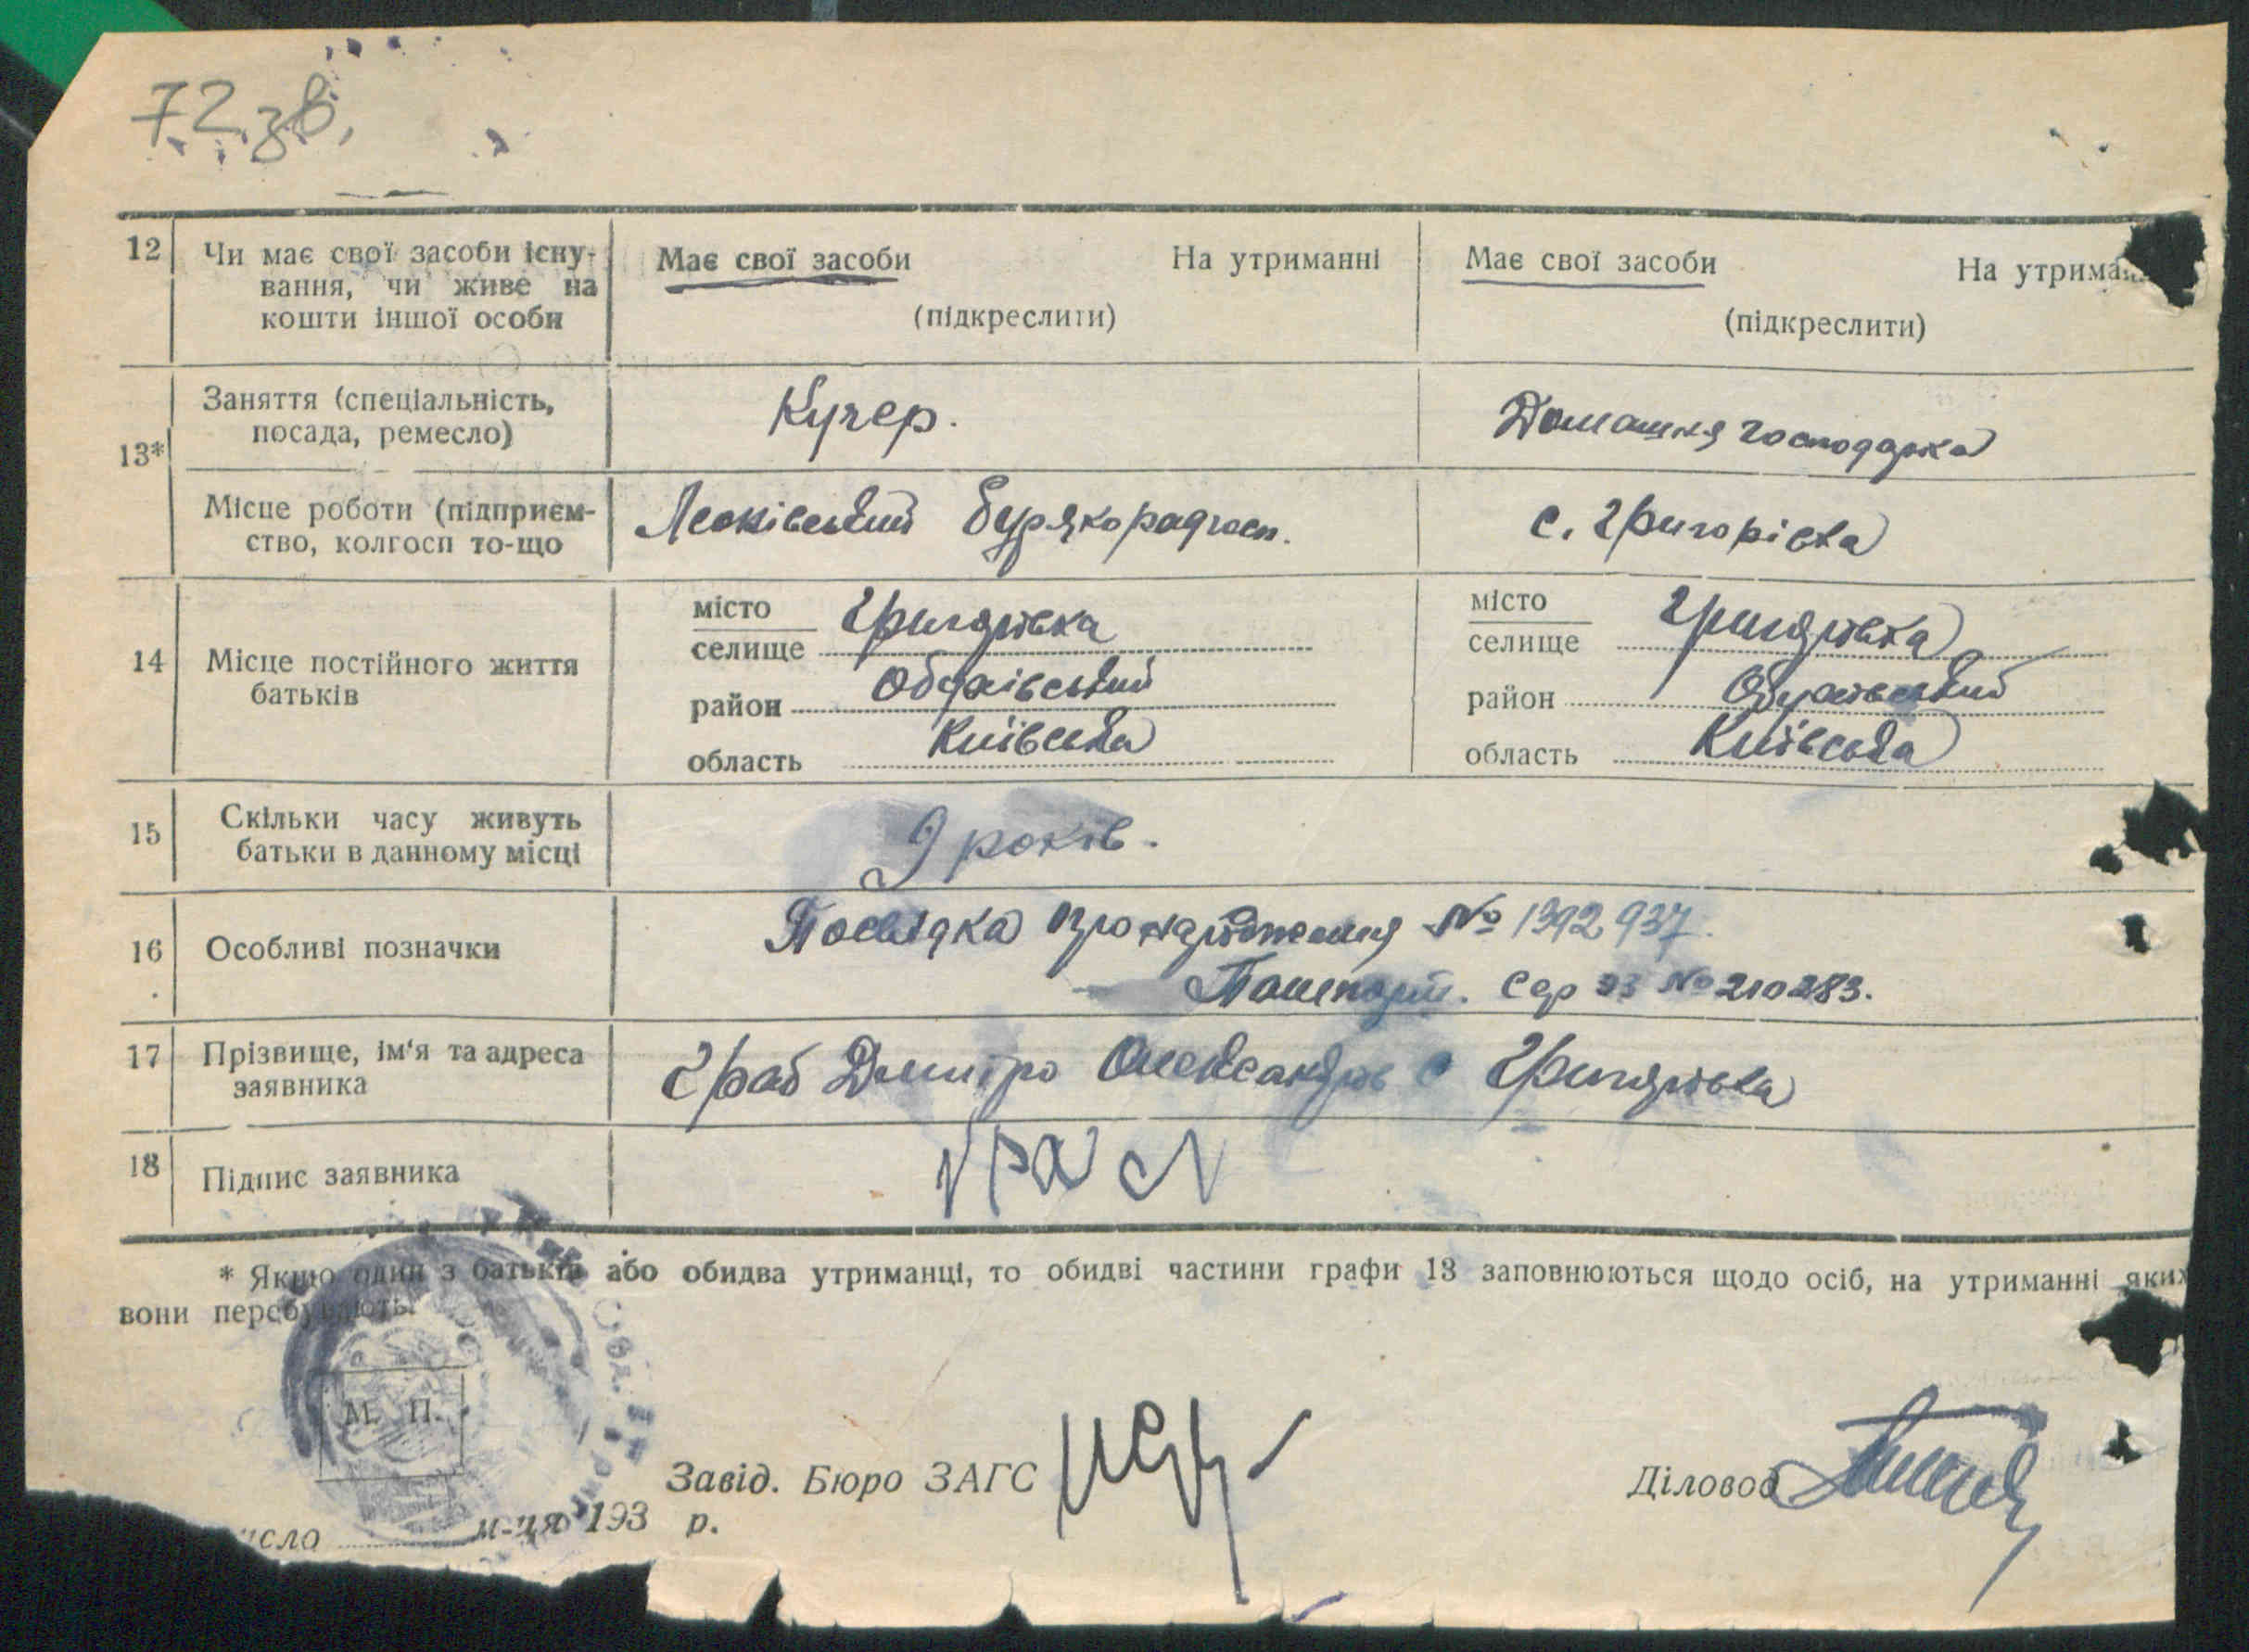 72 зв.
12 Чи має свої засоби існу-
вання, чи живе на
кошти іншої особи
Має свої засоби На утриманні
(підкреслити)
Має свої засоби На утриман
(підкреслити)
13* Заняття (спеціальність,
посада, ремесло)
Кучер.
Домашня господарка
Місце роботи (підприєм-
ство, колгосп то-що
бурякорадгосп.
с. Григорівка
14 Місце постійного життя
батьків
місто
селище Григорівка
район Обухівський
область Київська
місто
селище Григорівка
район Обухівський
область Київська
15 Скільки часу живуть
батьки в данному місці
9 років.
16 Особливі позначки
Посвідка про народження № 1392937.
Пашпорт. Сер № 210283.
17 Прізвище, ім'я та адреса
заявника
Граб Дмитро Олександров с Григорівка
18 Підпис заявника
* Якщо один з батьків або обидва утриманці, то обидві частини графи 13 заповнюються щодо осіб, на утриманні яких
вони перебувають.
М. П.
Завід. Бюро ЗАГС
Діловод
исло м-ця 193 р.